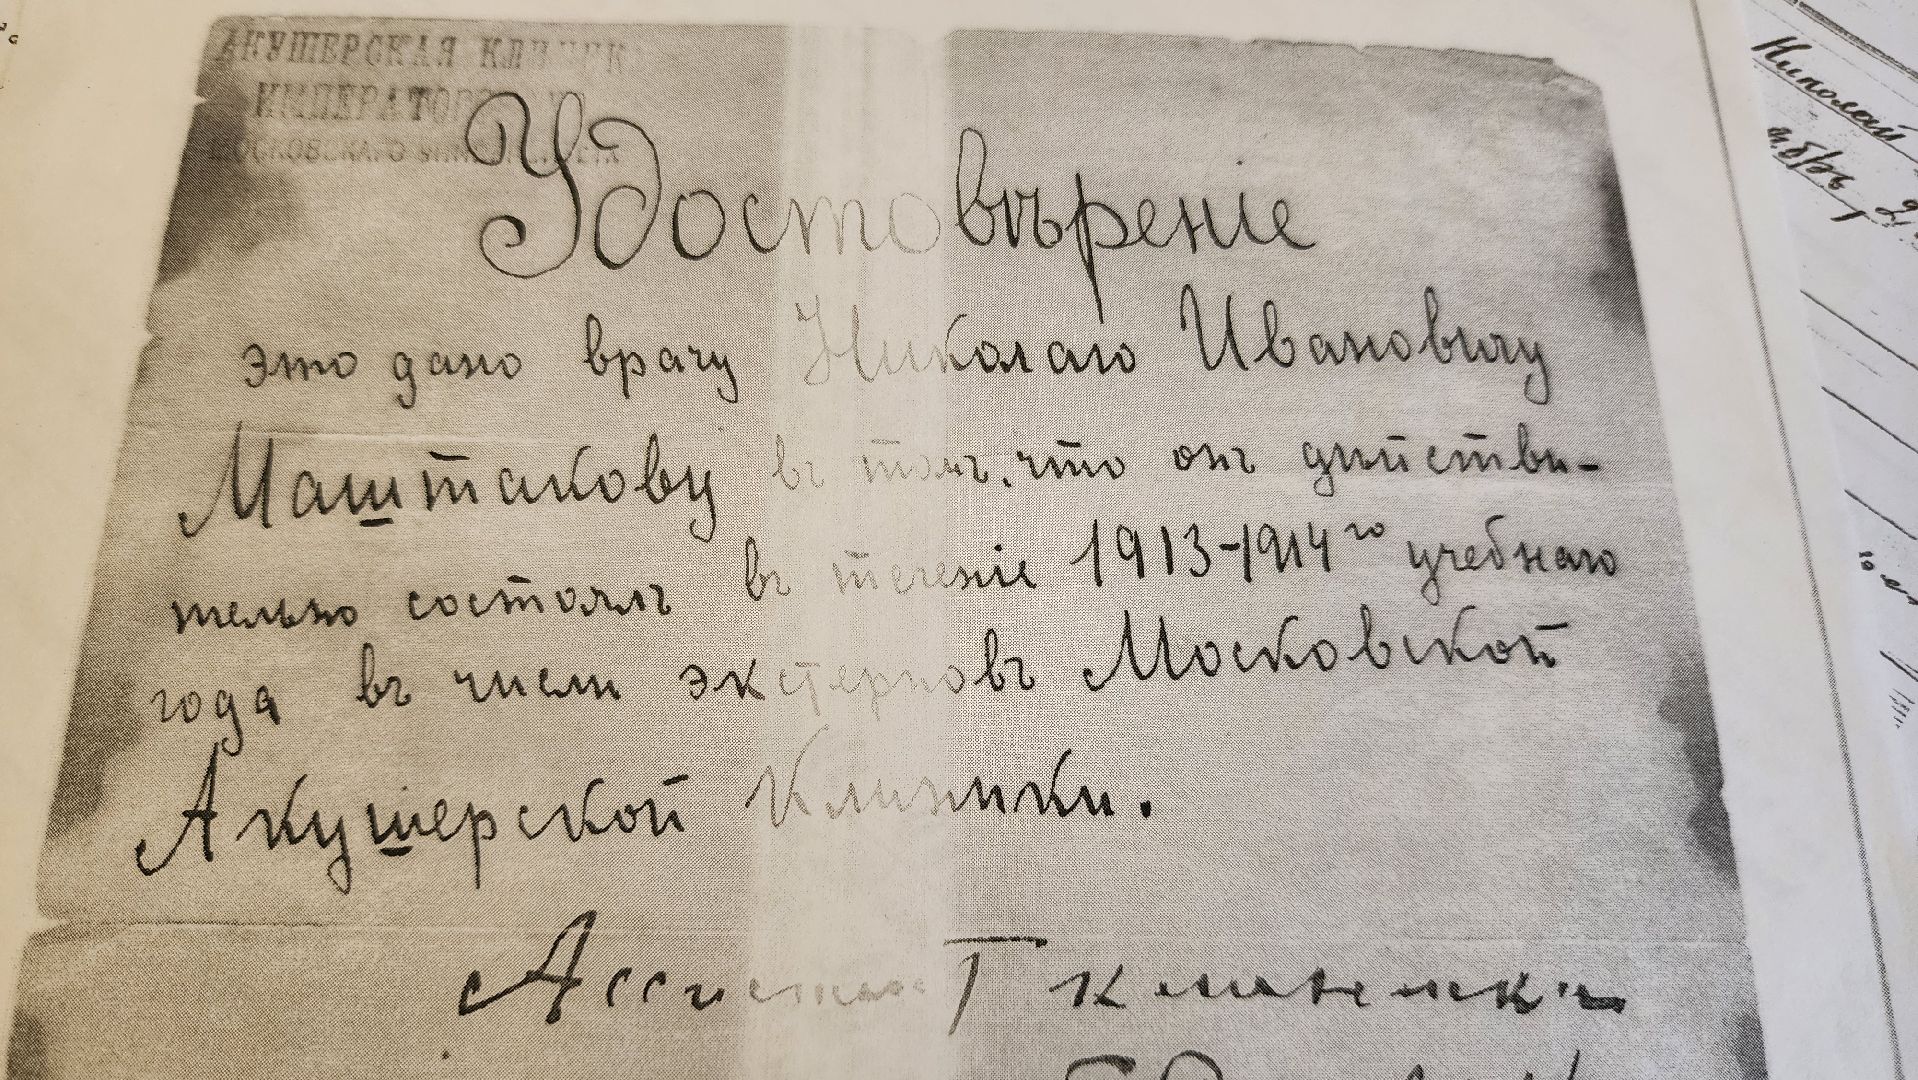 АКУШЕРСКАЯ КЛИНИК
ИМПЕРАТОРСК
МОСКОВСКАГО УНИВЕРСИТЕТА
Удостовѣреніе
это дано врачу Николаю Ивановичу
Маштакову въ томъ, что онъ дѣйстви-
тельно состоялъ въ теченіе 1913-1914го учебнаго
года въ числѣ экстерновъ Московской
Акушерской Клиники.
Ассистент клиники
Николай